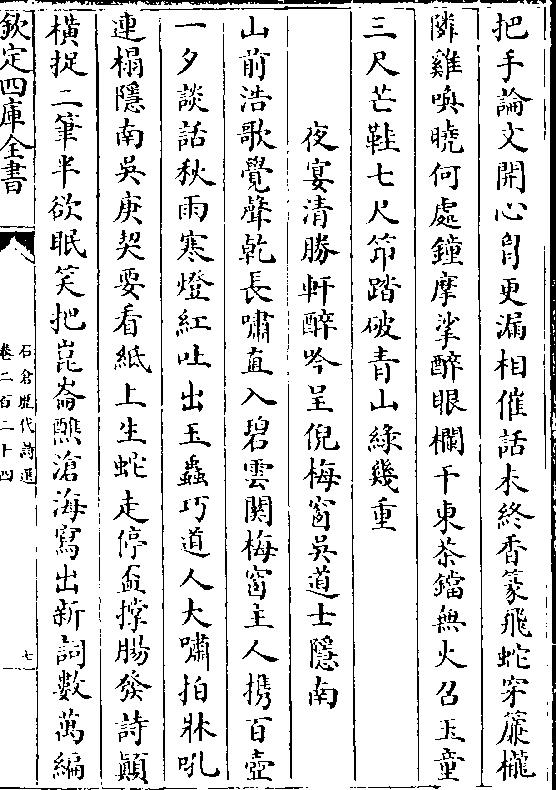 把手論文開心胷更漏相催話未終香篆飛蛇穿簾櫳
隣雞喚曉何處鐘摩挲醉眼欄干東茶鐺無火召玉童
三尺芒鞋七尺笻踏破青山綠幾重
夜宴清勝軒醉吟呈倪梅窗吳道士隱南
山前浩歌覺聲乾長嘯直入碧雲関梅窗主人携百壺
一夕談話秋雨寒燈紅吐出玉蟲巧道人大嘯拍牀吼
連榻隱南吳庚契要看紙上生蛇走停盃撑腸發詩顛
橫捉二筆半欲眠笑把崑崙醮滄海寫出新詞數萬編
欽定四庫全書
石倉歷代詩選
卷二百二十四
七